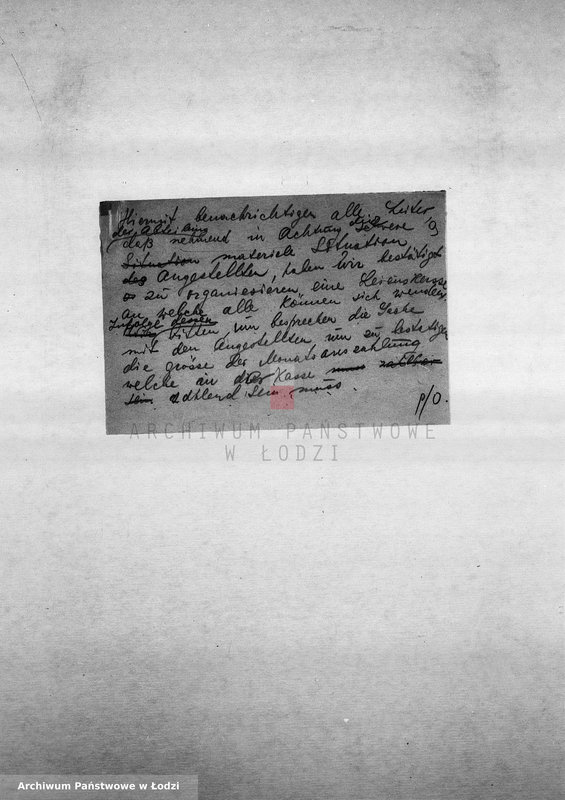 Hiermit benachrichtigen alle Leiter
der Abteilung
daß nehmend in Achtung die schwere
Situation materiele Situation
des Angestellten, haben wir bestätigt
zu organiesieren eine Hevenskasse
an welche alle können sich wenden
Zufolge dessen
bitten, um besprechen die Sache
mit den Angestellten um zu bestetigen
die grösse der Monatsauszahlung
welche an der Kasse muss zahlbar
sein zahlend sein muss.
p/o.
ARCHIWUM PAŃSTWOWE
W ŁODZI
Archiwum Państwowe w Łodzi